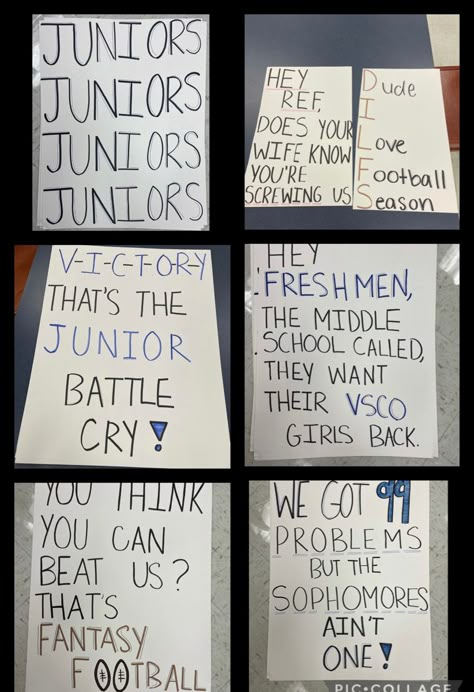 JUNIORS
JUNIORS
JUNIORS
JUNIORS
HEY
REF,
DOES YOUR
WIFE KNOW
YOU'RE
SCREWING US
Dude
I
Love
Football
Season
V-I-C-T-O-R-Y
THAT'S THE
JUNIOR
BATTLE
CRY!
HEY
FRESHMEN,
THE MIDDLE
SCHOOL CALLED,
THEY WANT
THEIR VSCO
GIRLS BACK.
YOU THINK
YOU CAN
BEAT US?
THAT'S
FANTASY
FOOTBALL
WE GOT 99
PROBLEMS
BUT THE
SOPHOMORES
AIN'T
ONE!
PIC•COLLAGE